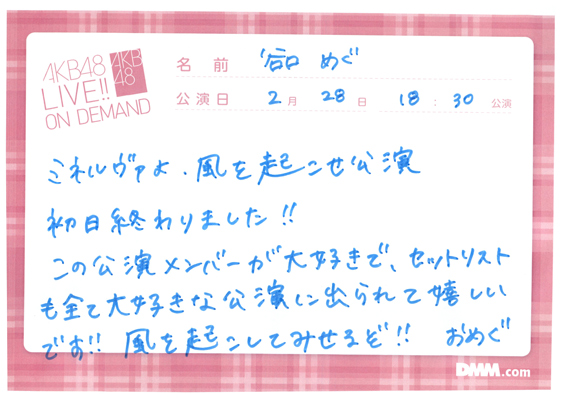 AKB48
LIVE!!
ON DEMAND
AKB
48
名前 谷口 めぐ
公演日 2月 28日 18:30 公演
ミネルヴァよ、風を起こせ公演
初日終わりました!!
この公演メンバーが大好きで、セットリスト
も全て大好きな公演に出られて嬉しい
です!! 風を起こしてみせるぞ!! おめぐ
DMM.com